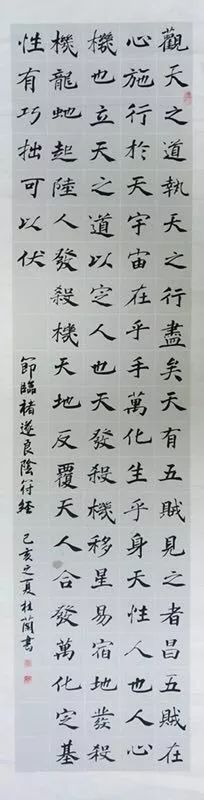 觀天之道執天之行盡矣天有五賊見之者昌五賊在
心施行於天宇宙在乎手萬化生乎身天性人也人心
機也立天之道以定人也天發殺機移星易宿地發殺
機龍虵起陸人發殺機天地反覆天人合發萬化定基
性有巧拙可以伏
節臨褚遂良陰符經 己亥之夏杜蘭書